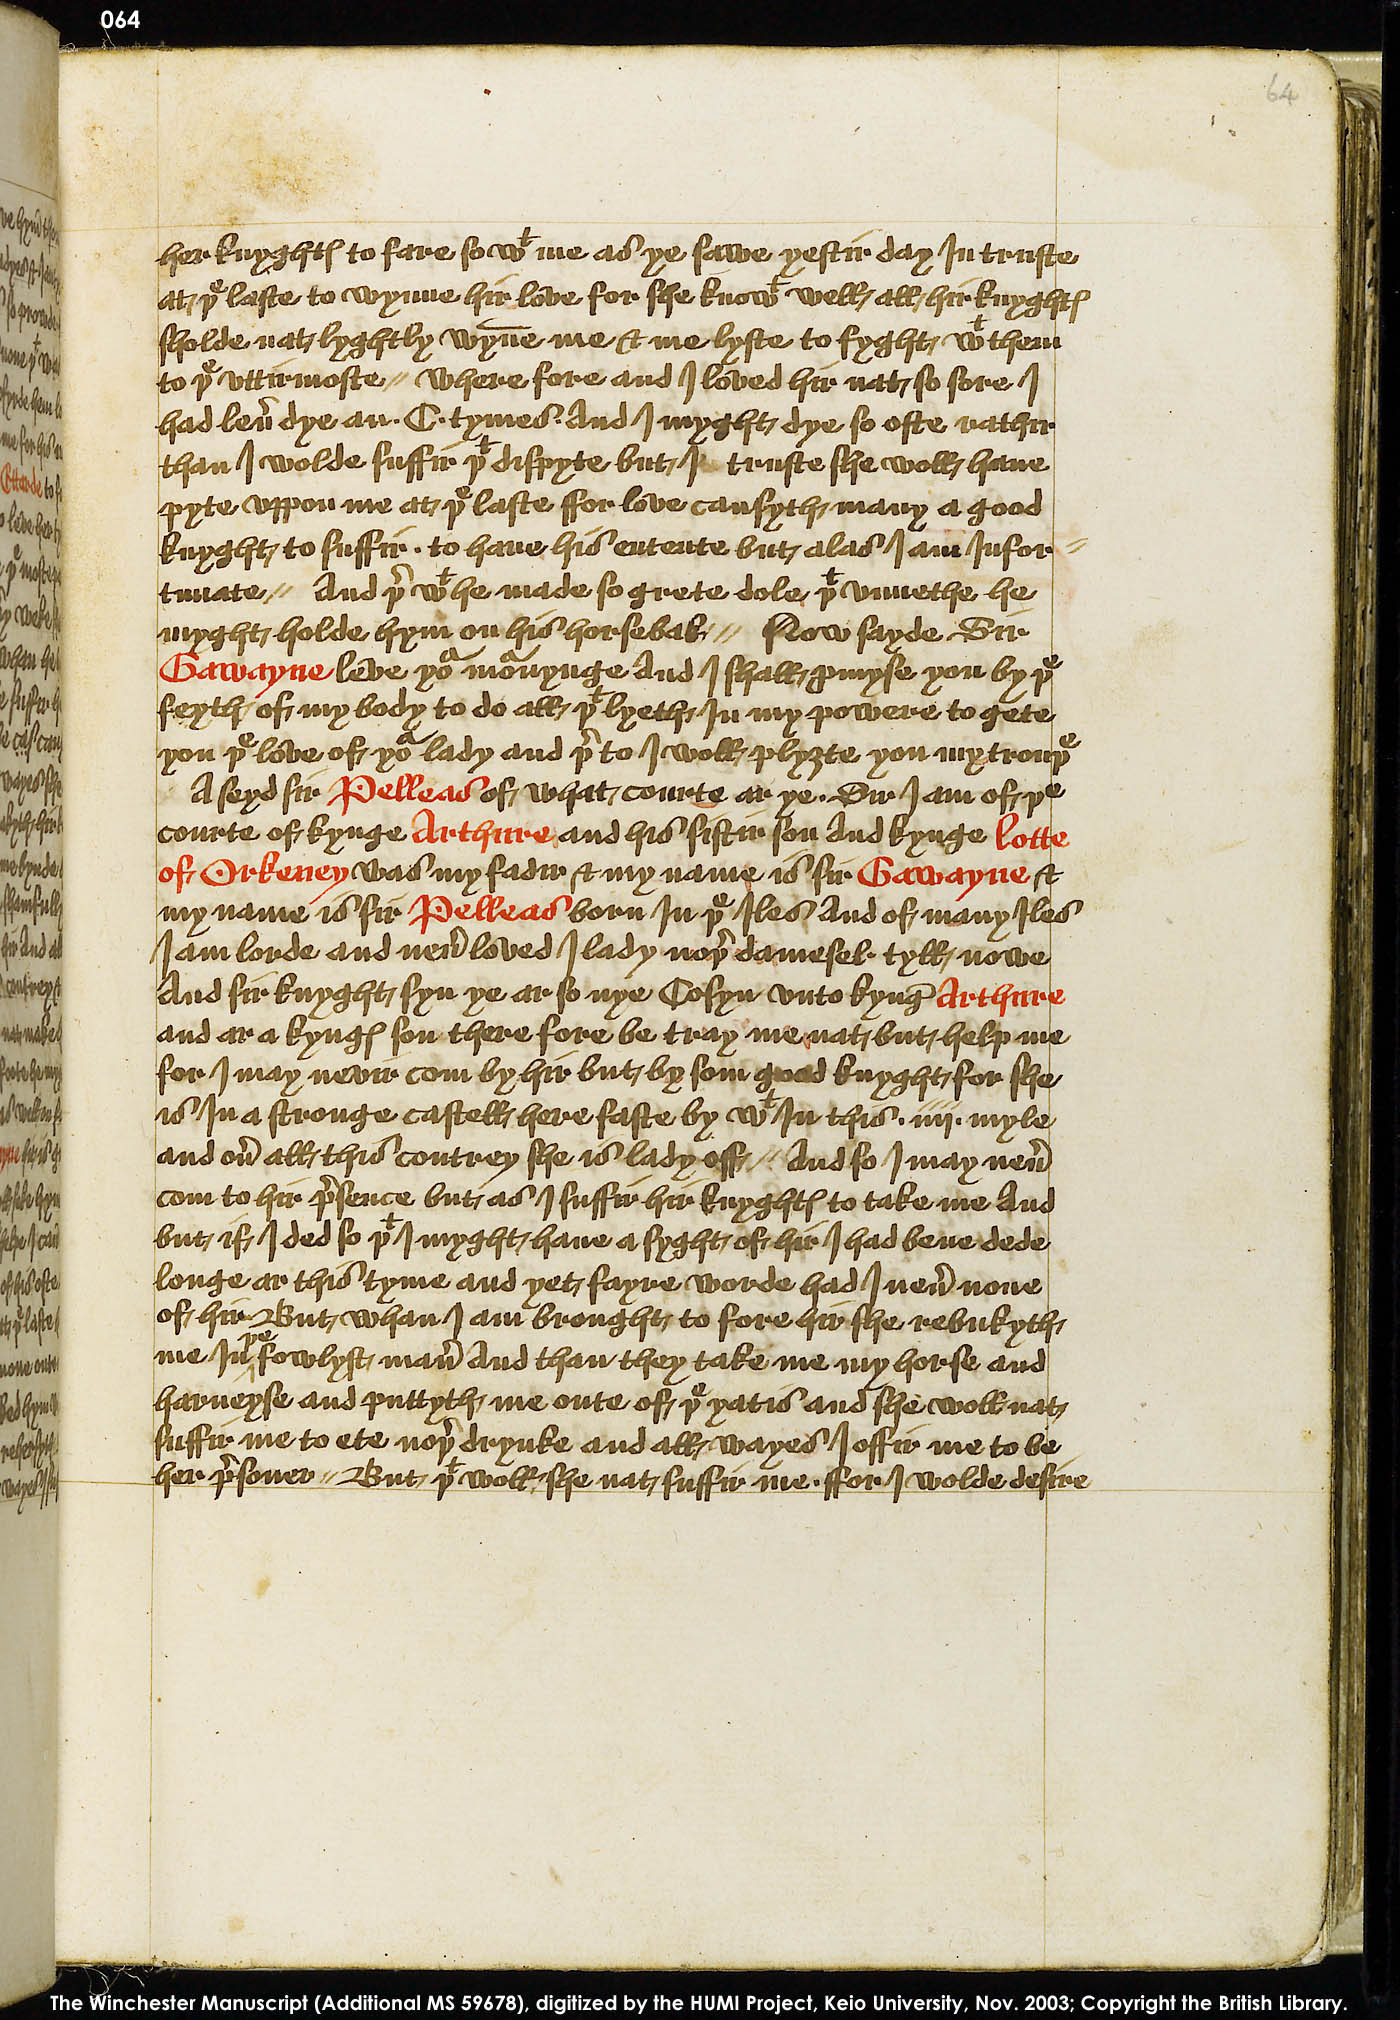 064
64
her knyghtꝭ to fare so wᵗ me as ye sawe yestir day In truste
at þᵉ laste to wynne hir love for she knowᵗ well all hir knyghtꝭ
sholde nat lyghtly wyn̄e me & me lyste to fyght wᵗ them
to þᵉ vttirmoste // where fore and I loved hir nat so sore I
had leu̓ dye an · C · tymes · And I myght dye so ofte rathir
than I wolde suffir þᵗ dispyte but I truste she woll haue
pyte vppon me at þᵉ laste ffor love causyth many a good
knyght to suffir · to haue his entente but alas I am Infor //
tunate // And þr̓ wᵗ he made so grete dole þᵗ vnnethe he
myght holde hym on his horsebak // Now sayde Sir
Gawayne leve yoᵃ moᵃnynge And I shall ꝓmyse you by þᵉ
feyth of my body to do all þᵗ lyeth In my powere to gete
you þᵉ love of yoᵃ lady and þr̓ to I woll plyȝte you my trouþᵉ
A seyd sir Pelleas of what courte ar ye · Sir I am of þᵉ
courte of kynge Arthure and his sistir son And kynge lotte
of Orkeney was my fadir & my name is sir Gawayne &
my name is sir Pelleas born In þᵉ Iles And of many Iles
I am lorde and neu̓ loved I lady noþ̓ damesel tyll nowe
And sir knyght syn ye ar so nye Cosyn vnto kynḡ Arthure
and ar a kyngꝭ son there fore be tray me nat but help me
for I may nevir com by hir but by som good knyght for she
is In a stronge castell here faste by wᵗ In this · iiij · myle
and ou̓ all this contrey she is lady off // And so I may neu̓
com to hir p̓sence but as I suffir hir knyghtꝭ to take me And
but if I ded so þᵗ I myght haue a syght of hir I had bene dede
longe ar this tyme and yet fayre worde had I neu̓ none
of hir But whan I am brought to fore hir she rebukyth
me In þᵉ fowlyst man̓ And than they take me my horse and
harneyse and puttyth me oute of þᵉ yatis and she woll nat
suffir me to ete noþ̓ drynke and all wayes I offir me to be
her p̓soner // But þᵗ woll she nat suffir me · ffor I wolde desire
The Winchester Manuscript (Additional MS 59678), digitized by the HUMI Project, Keio University, Nov. 2003; Copyright the British Library.